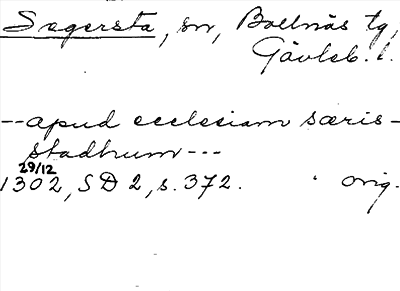 Segersta, sn, Bollnäs tg,
Gävleb. l.
-- apud ecclesiam særis-
stadhum ---
29/12
1302, SD 2, s. 372. orig.